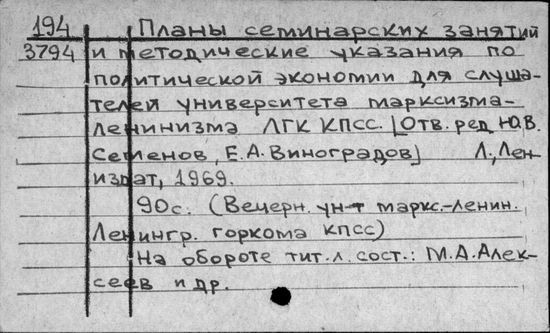 194 Планы семинарских занятий
3794 и методические указания по
политической экономии для слуша-
телей университета марксизма-
ленинизма ЛГК КПСС. [Отв. ред Ю.В.
Семенов, Е.А. Виноградов] Л., Лен
издат, 1969.
90с. (Вечерн. ун-т маркс.-ленин.
Ленингр. горкома КПСС)
На обороте тит. л. сост.: М.А. Алек-
сеев и др.